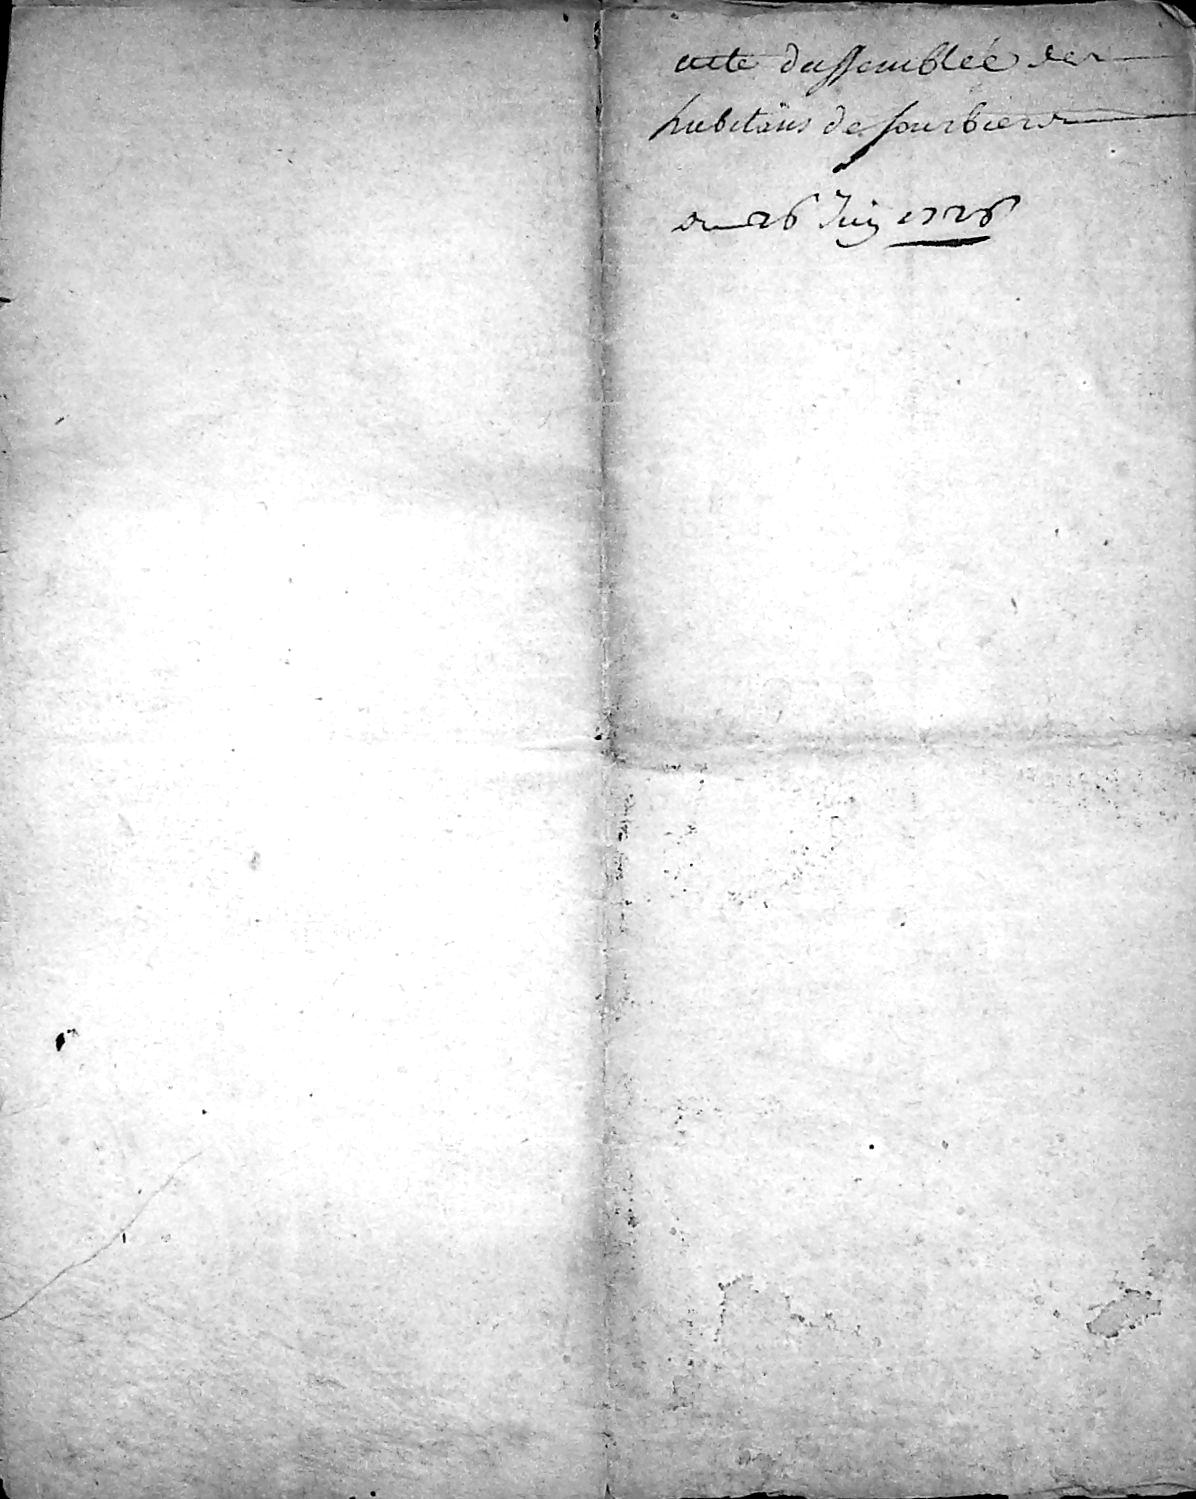 acte dassemblée des
habitans de sourbiere
du 26 Juin 1726